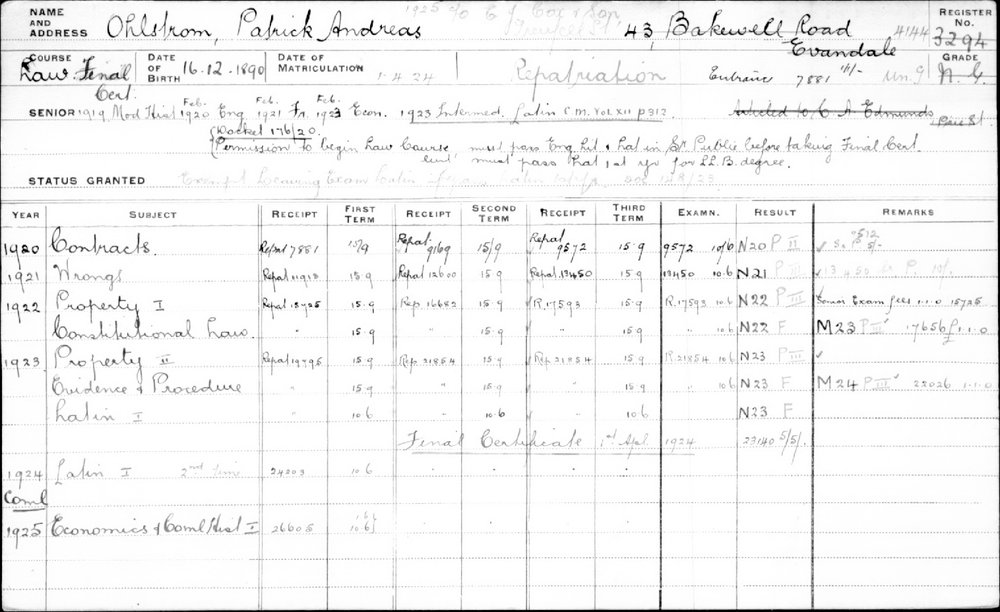 NAME AND ADDRESS Ohlstrom, Patrick Andreas 1925 c/o 43, Bakewell Road Evandale 4144 REGISTER No. 3294
COURSE Law Final Cert. DATE OF BIRTH 16.12.1890 DATE OF MATRICULATION 1.4.24 Repatriation Entrance 7881 GRADE N.G.
SENIOR 1919 Mod Hist Feb. 1920 Eng Feb. 1921 Fr. Feb. 1923 Econ. 1923 Intermed. Latin C.M. Vol XII p 312 Edmunds
Docket 176/20.
Permission to begin Law Course must pass Eng. Lit & Lat in Sr. Public before taking Final Cert.
must pass Lat 1st yr for LL.B. degree.
STATUS GRANTED
YEAR SUBJECT RECEIPT FIRST TERM RECEIPT SECOND TERM RECEIPT THIRD TERM EXAMN. RESULT REMARKS
1920 Contracts. Repat 7881 15/9 Repat. 9169 15/9 Repat 9572 15.9 9572 10/6 N20 P II
1921 Wrongs Repat 11912 15.9 Repat 12600 15.9 Repat 13450 15.9 13450 10.6 N21
1922 Property I Repat 15725 15.9 Rep 16682 15.9 R.17593 15.9 R.17593 10.6 N22 P III Exam fees 1.1.0 15725
Constitutional Law. " 15.9 " 15.9 " 15.9 " 10.6 N22 F M23 P III 17656 1.1.0
1923 Property II Repat 19795 15.9 Rep 21854 15.9 Rep 21854 15.9 R.21854 10.6 N23 P III ✓
Evidence & Procedure " 15.9 " 15.9 " 15.9 " 10.6 N23 F M24 P III 22026 1.1.0
Latin I " 10.6 " 10.6 " 10.6 N23 F
Final Certificate 1st Apl 1924 23140 5/5/.
1924 Latin I 2nd Time 24203 10.6
Coml
1925 Economics & Coml Hist I 26605 10.6